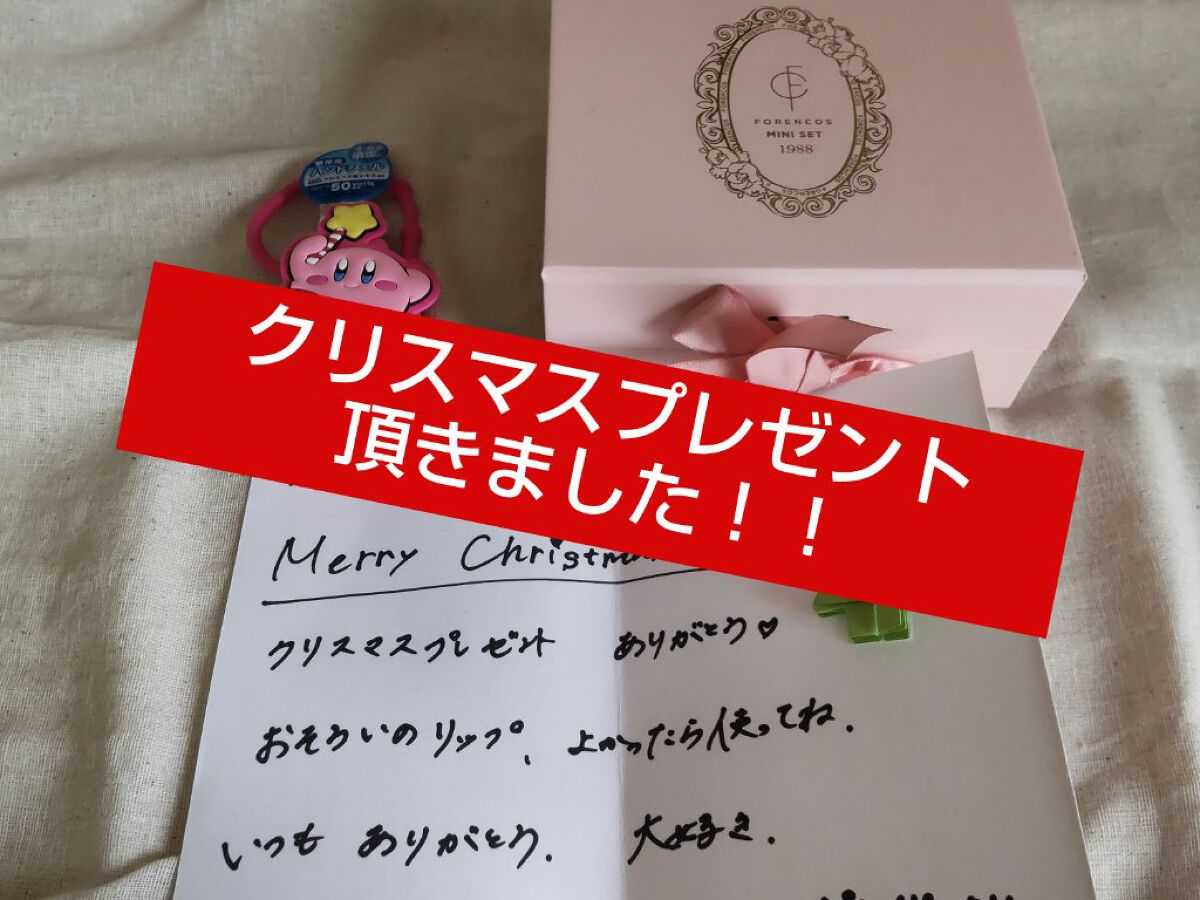 FORENCOS
MINI SET
1988
ハンドジェル
50
クリスマスプレゼント
頂きました！！
Merry Christma
クリスマスプレゼント ありがとう♡
おそろいのリップ、よかったら使ってね.
いつも ありがとう. 大好き.